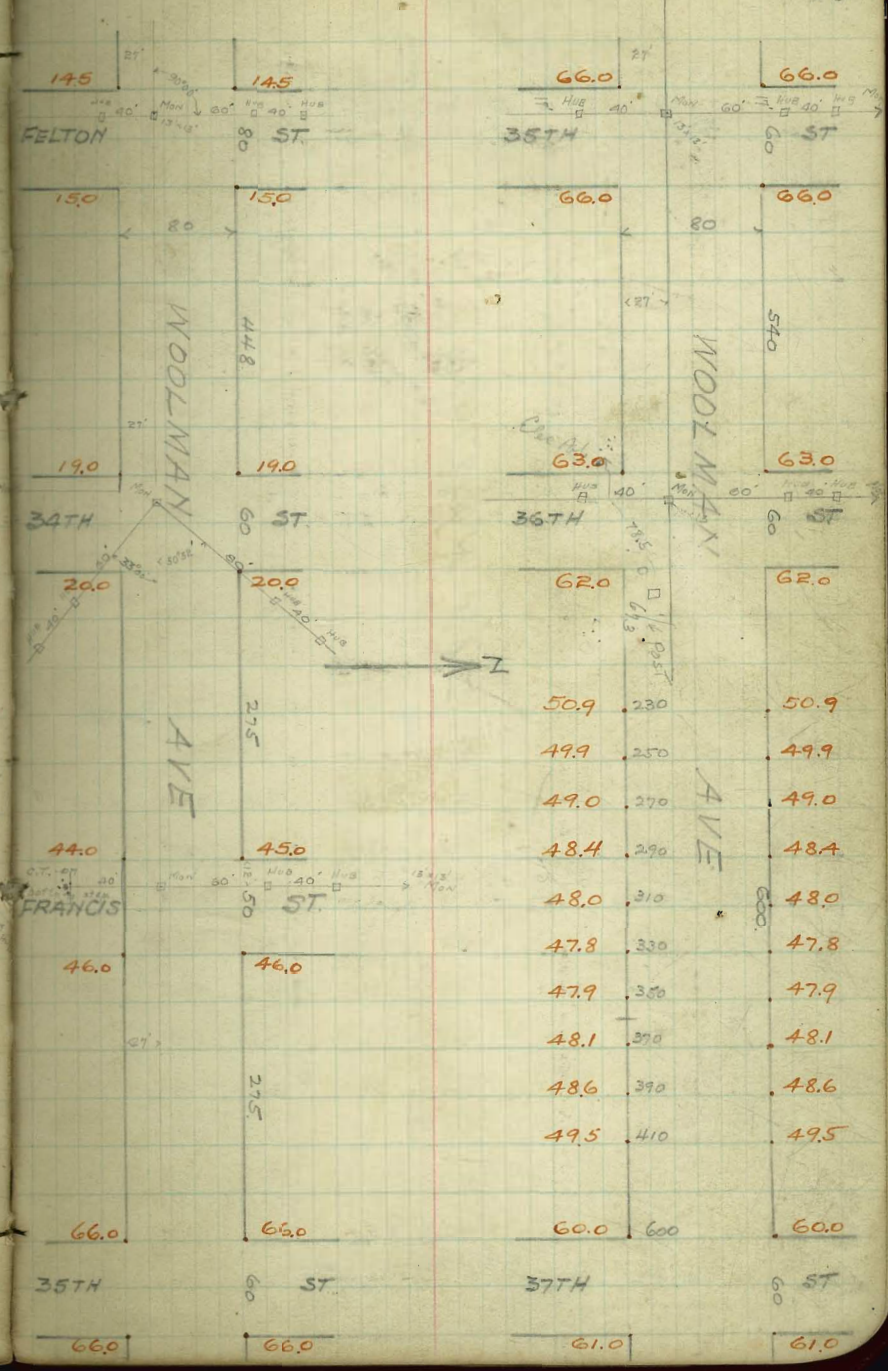 27'
145 145
HUB 40' MON 60' HUB 40' HUB
FELTON 80 ST.
15.0 15.0
80
WOOLMAN 448
27'
19.0 19.0
MON
34TH 60 ST.
20.0 20.0
HUB 40' HUB
HUB 40'
Z
AVE 275
44.0 45.0
40' MON 60' HUB 40' HUB MON
FRANCIS 50 ST.
46.0 46.0
275
66.0 66.0
35TH 60 ST.
66.0 66.0
27'
66.0 66.0
HUB 40' MON 60' HUB 40' HUB
35TH 60 ST
66.0 66.0
80
27'
WOOLMAN 540
63.0 63.0
HUB 40' MON 60' HUB 40' HUB
36TH 60 ST
62.0 62.0
50.9 230 50.9
49.9 250 49.9
49.0 270 49.0
AVE
48.4 290 48.4
48.0 310 600. 48.0
47.8 330 47.8
47.9 350 47.9
48.1 370 48.1
48.6 390 48.6
49.5 410 49.5
60.0 600 60.0
37TH 60 ST
61.0 61.0